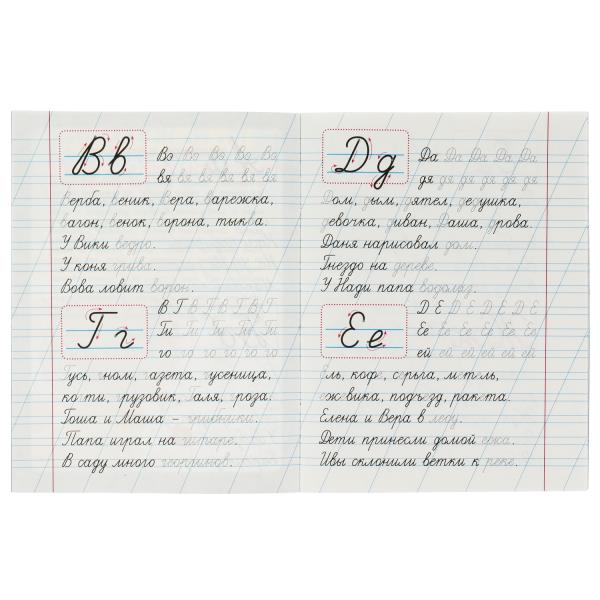 Вв
Во Во Во Во Во
вя вя вя вя вя вя
Верба, веник, Вера, варежка,
вагон, венок, ворона, тыква.
У Вики ведро.
У коня грива.
Вова ловит ворон.
Гг
В Г В Г В Г В Г
Ги Ги Ги Ги Ги
го го го го го го
Гусь, гном, газета, гусеница,
когти, грузовик, Галя, гроза.
Гоша и Маша – грибники.
Папа играл на гитаре.
В саду много георгинов.
Дд
Да Да Да Да Да
дя дя дя дя дя дя
Дом, дым, дятел, дедушка,
девочка, диван, Даша, дрова.
Даня нарисовал дом.
Гнездо на дереве.
У Нади папа водолаз.
Ее
Д Е Д Е Д Е Д Е
Ее Ее Ее Ее Ее
ей ей ей ей ей ей
Ель, кофе, серьга, метель,
ежевика, подъезд, ракета.
Елена и Вера в лесу.
Дети принесли домой ежа.
Ивы склонили ветки к реке.